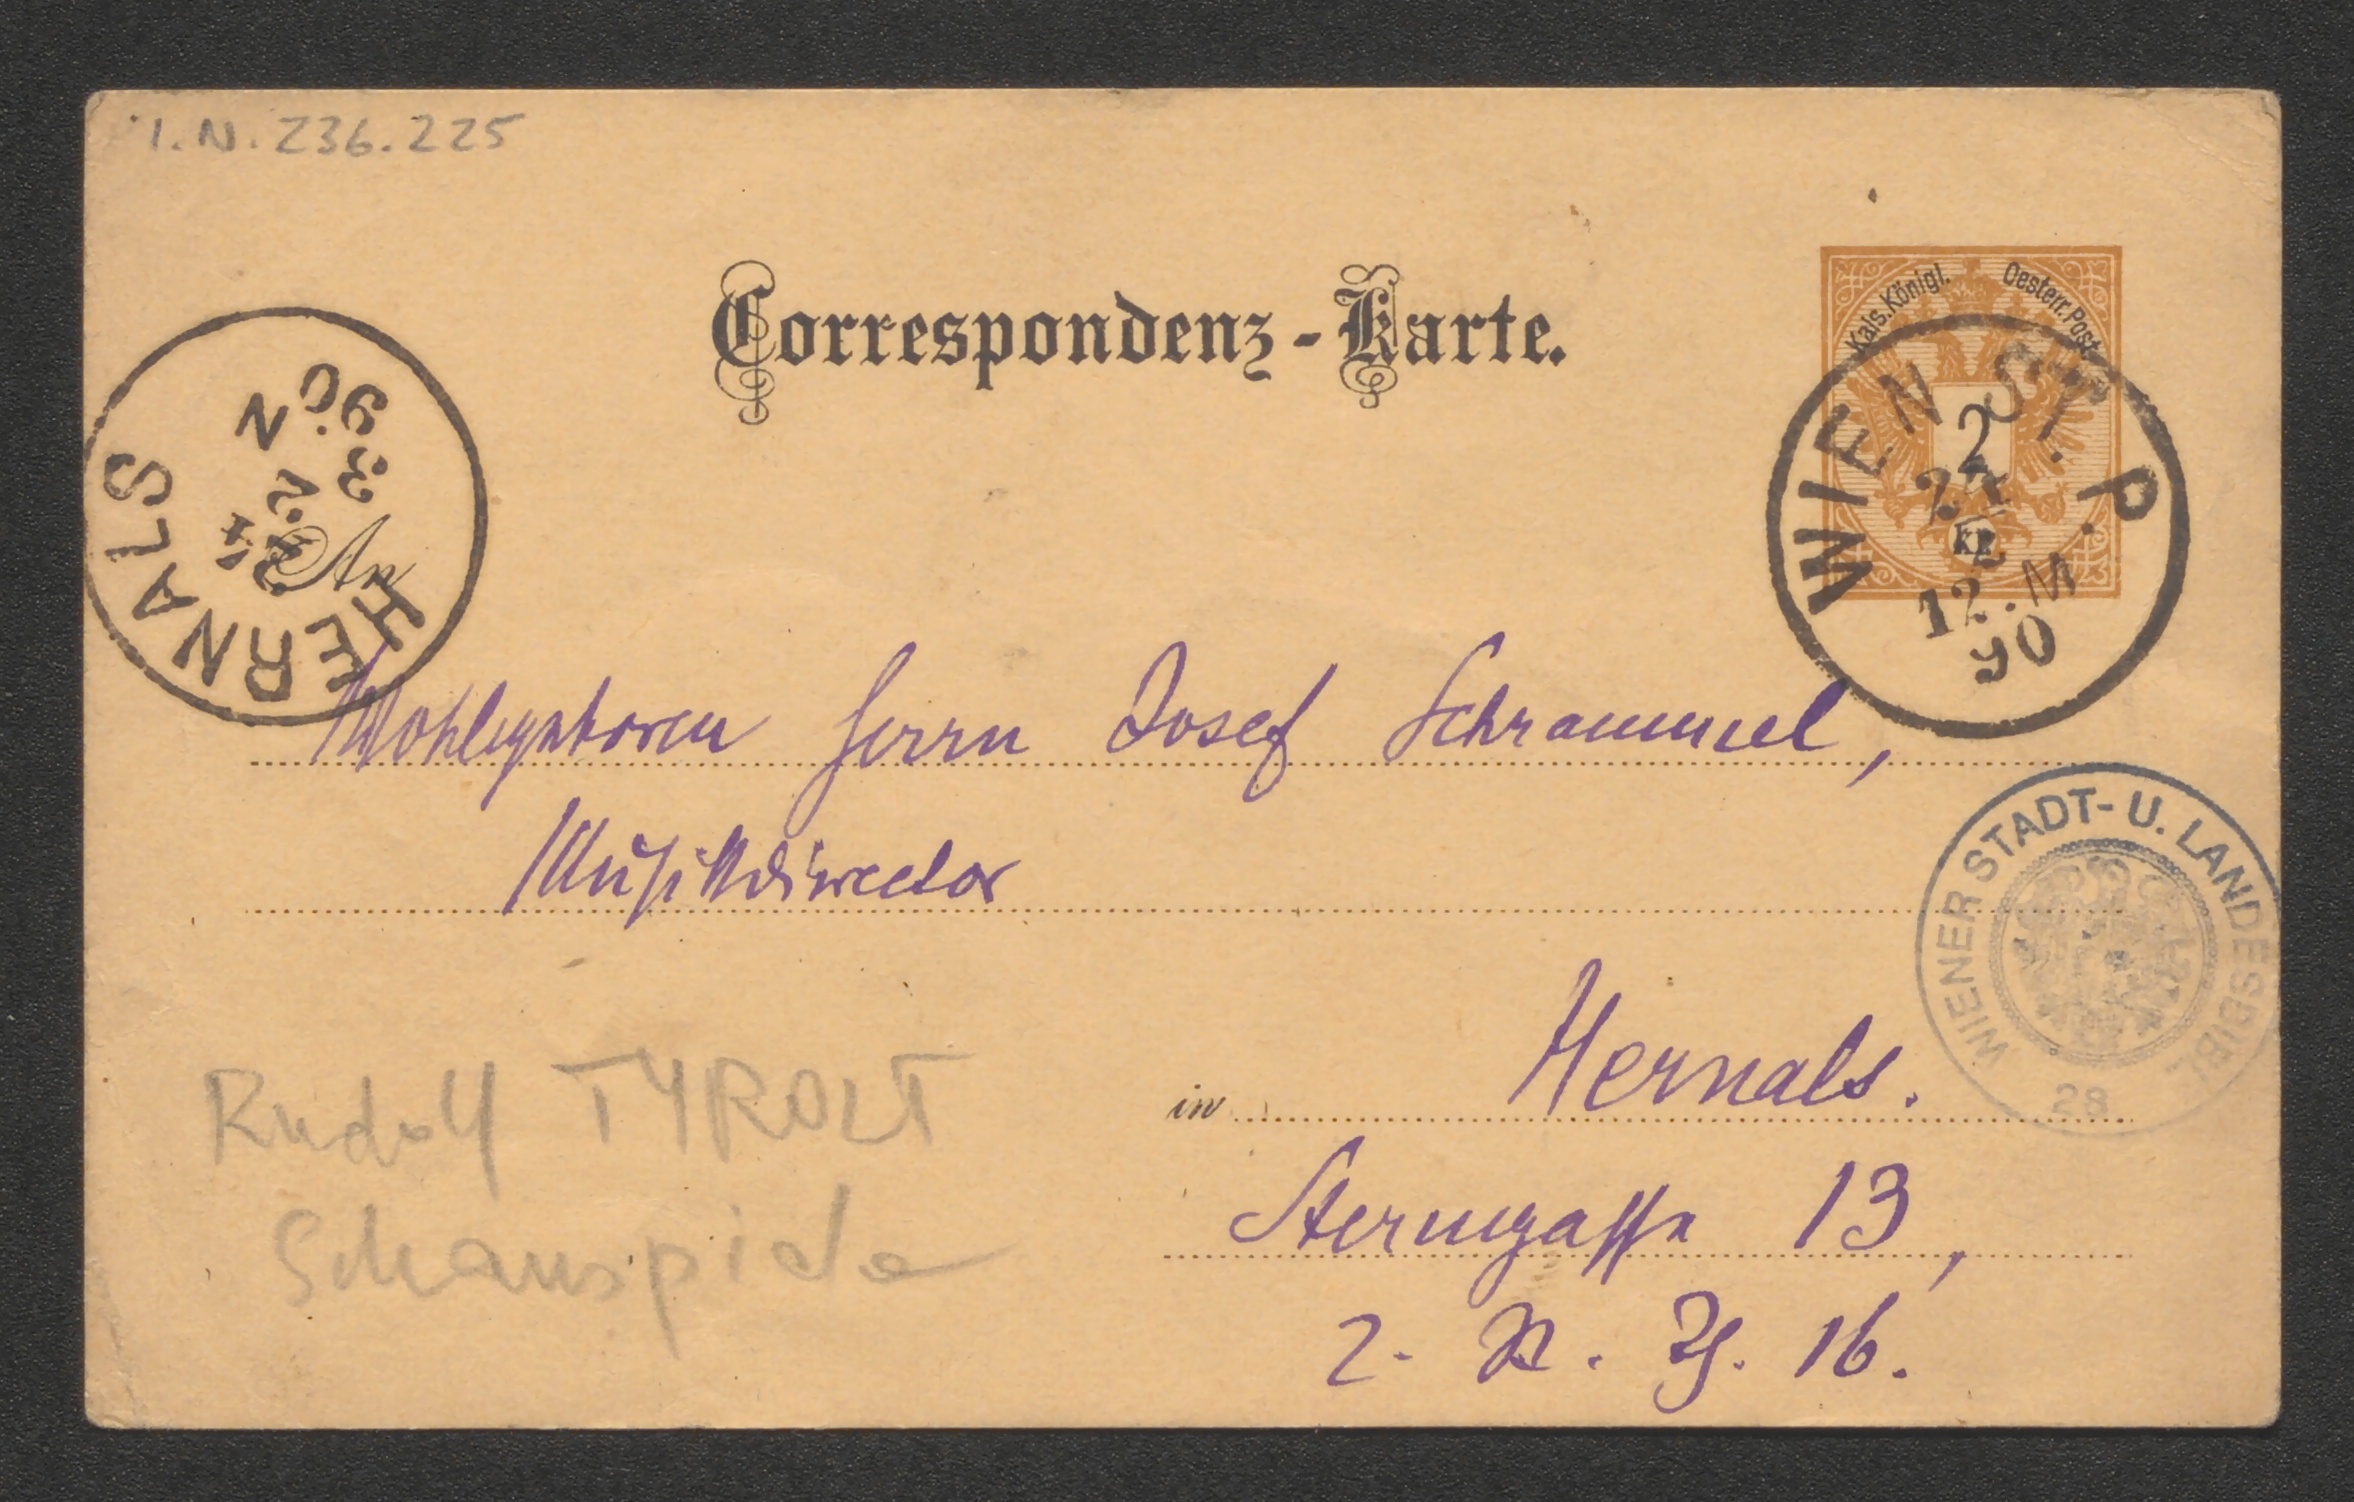 I.N. 236.225
Correspondenz-Karte.
Kais. Königl. Oesterr. Post
2
KR
WIEN ST. P.
24
2
12. M
90
HERNALS
24
2
90
3 N
An
Wohlgeboren Herrn Josef Schrammel,
Musikdirector
WIENER STADT- U. LANDESBIBL
28
in Hernals.
Sterngasse 13,
2. St. Th. 16.
Rudolf TYROLT
Schauspieler